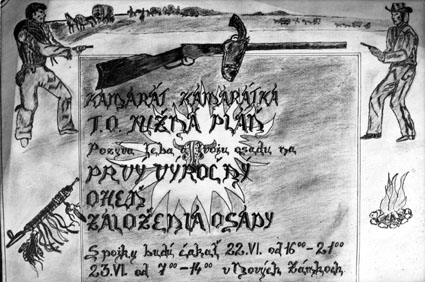 KAMARÁT, KAMARÁTKA
T.O. NIŽNÁ PLÁŇ
Pozýva teba a tvoju osadu na
PRVÝ VÝROČNÝ
OHEŇ
ZALOŽENIA OSADY
Spojky budú čakať 22.VI. od 16⁰⁰-21⁰⁰
23.VI. od 7⁰⁰-14⁰⁰ v